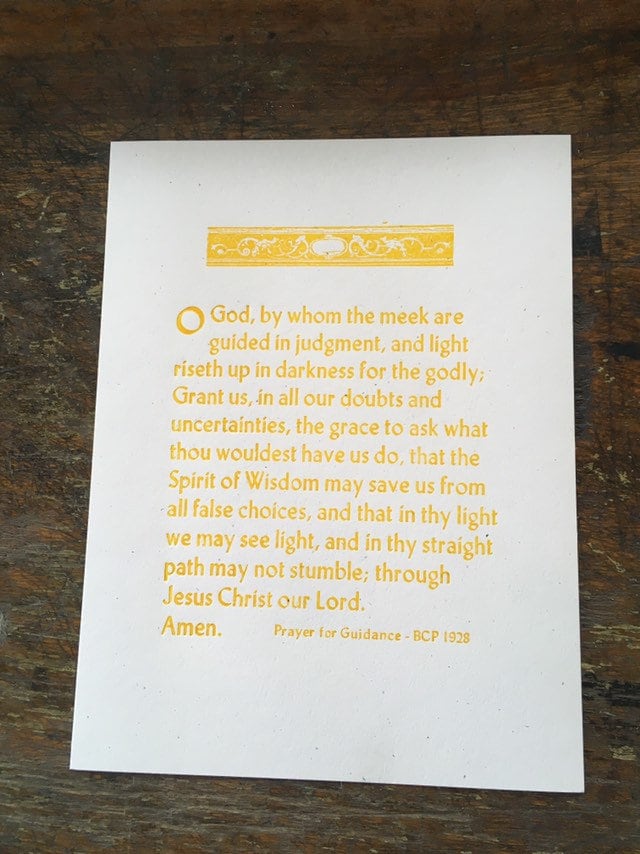 O God, by whom the meek are
guided in judgment, and light
riseth up in darkness for the godly;
Grant us, in all our doubts and
uncertainties, the grace to ask what
thou wouldest have us do, that the
Spirit of Wisdom may save us from
all false choices, and that in thy light
we may see light, and in thy straight
path may not stumble; through
Jesus Christ our Lord.
Amen. Prayer for Guidance - BCP 1928